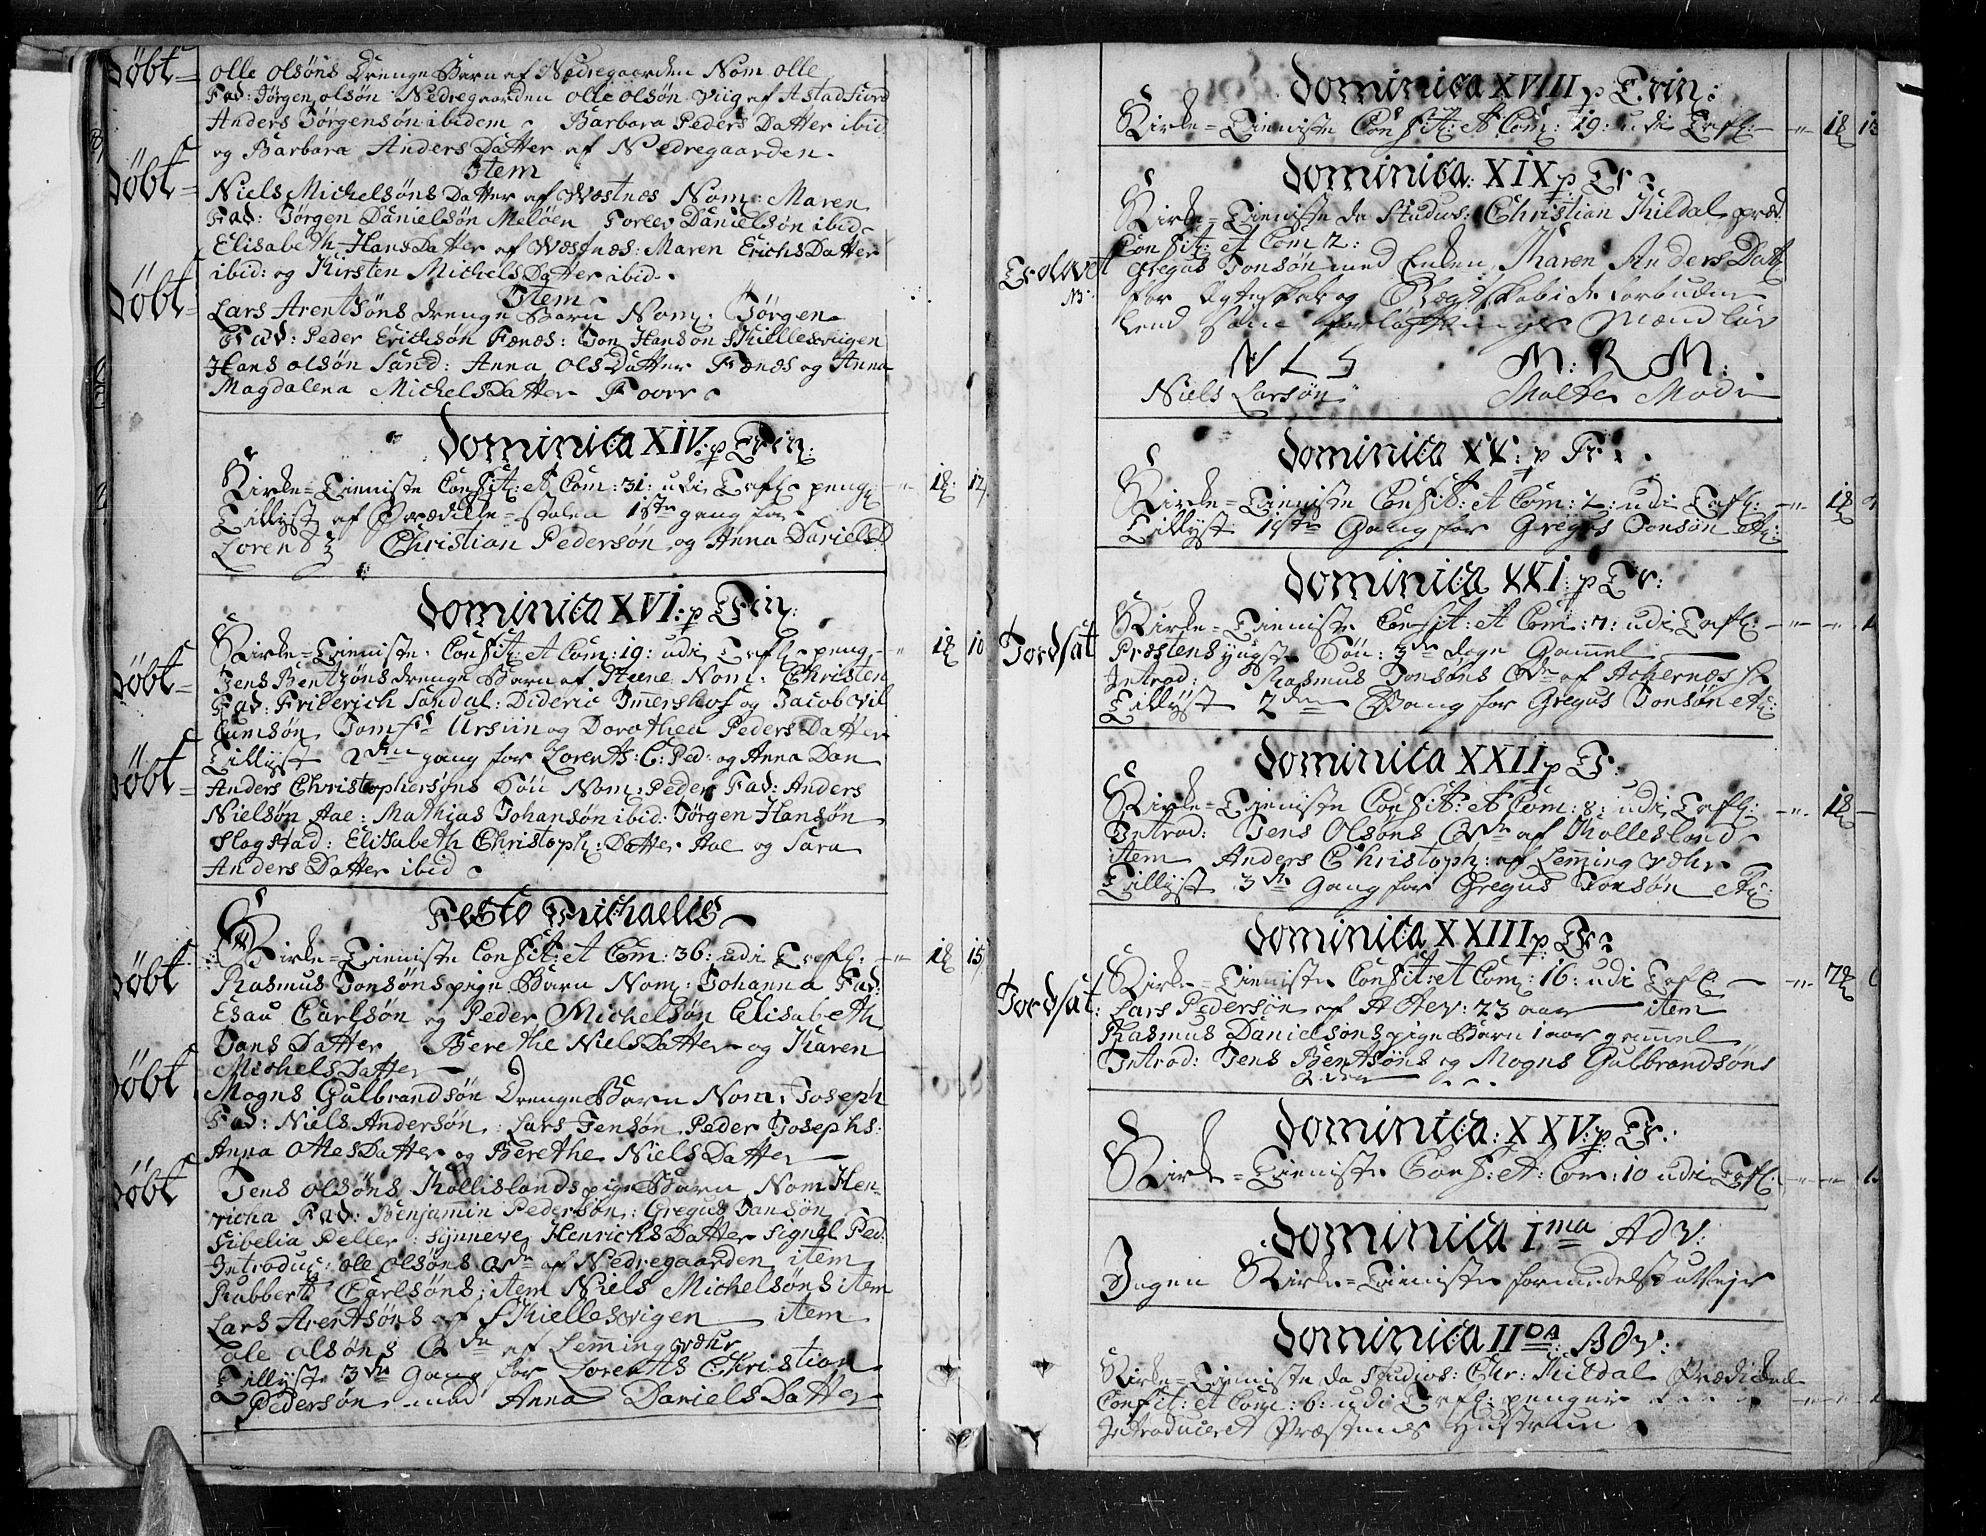 Döbt = Olle Olsöns Drenge Barn af Nedregaarden Nom Olle
Fad: Jörgen Olsön Nedregaarden Olle Olsön Viig af Astadfiord
Anders Jörgensön ibidem Barbara Peders Datter ibid
og Barbara Anders Datter af Nedregaarden.
Item
Döbt = Niels Michelsöns Datter af Westnes Nom: Maren
Fad: Jörgen Danielsön Melöen Forlev Danielsön ibid
Elisabeth Hans Datter af Wæstnæs: Maren Erichs Datter
ibid: og Kirsten Michels Datter ibid.
Item
Döbt = Lars Arentsöns Drenge Barn Nom: Jörgen
Fad: Peder Erichsön Fænæs: Jon Hansön Skillesviigen
Hans Olsön Sand: Anna Ols Datter Fænæs og Anna
Magdalena Michels Datter Foorr
Dominica XIV: p Trin:
Kirke-Tieniste Confit: et Com: 31: udi Tafl: peng: - " - 1 12
Tillyst af Prædike-stolen 1ste gang for
Lorentz Christian Pedersön og Anna Daniels D
Dominica XVI: p Trin:
Kirke-Tieniste Confit: et Com: 19: udi Tafl: peng - " 1 10
Döbt = Jens Bentzöns Drenge Barn af Steene Nom: Christen
Fad: Friderich Sandal: Dideric Immershof og Jacob Vil
lumsön Jomfr Ursin og Dorothea Peders Datter
Tillyst 2den gang for Lorents: C: Ped: og Anna Dan
Döbt = Anders Christophersöns Sön Nom: Peder Fad: Anders
Nielsön Aae: Mathias Johansön ibid: Jörgen Hansön
Slogstad: Elisabeth Christoph: Datter Aae og Sara
Anders Datter ibid
Festo Michaelis
Kirke-Tieniste Confit: et Com: 36: udi Tafl: - " - 1 15
Döbt Rasmus Jonsöns pige Barn Nom: Johanna Fad:
Esau Carlsön og Peder Michelsön Elisabeth
Jons Datter Berethe Niels Datter og Karen
Michels Datter
Döbt Mogns Gulbrandsön Drenge Barn Nom: Joseph
Fad: Niels Andersön: Lars Jensön Peder Josephs:
Anna Ottes Datter og Berethe Niels Datter
Döbt Jens Olsöns Kollislands pige Barn Nom Hen-
richa Fad: Benjamin Pedersön: Gregus Jansön
Sibelia Peller: Synneve Henrichs Datter Signel Ped:
Introduc: Ole Olsöns Qde af Nedregaarden item
Rubbert Carlsöns: item Niels Michelsöns item
Lars Arentsöns af Skiellesvigen item
Ole Olsöns Qde af Lemmingvær
Tillyst 3de Gang for Lorents Christian
Pedersön med Anna Daniels Datter
Dominica XVIII p Trin:
Kirke-Tieniste Confit: et Com: 19: udi Tafl: - " - 1
Dominica: XIX p: Tr:
Kirke-Tieniste da Studios: Christian Kildal præd.
Confit: et Com 2:
Trolovet Gregus Jonsön med Enken Karen Anders Datt
NB: for Ægteskab og i de forbuden
Leed som forlöftninger Mænd
N L S M: R M:
Niels Larsön Malte Mode
Dominica XX: p Tr:
Kirke-Tieniste Confit: et Com: 2: udi Tafl: - " - 1
Tillyst 1ste Gang for Gregus Jonsön etc:
Dominica XXI: p Tr:
Kirke-Tieniste Confit: et Com: 7: udi Tafl: - " -
Jordsat Præstens yngste Sön: 3de dage Gammel
Introd: Rasmus Jonsöns Qde af Achernes
Tillyst 2den Gang for Gregus Jonsön etc:
Dominica XXII p Tr:
Kirke-Tieniste Confit: et Com: 8: udi Tafl: - " - 1 -
Introd: Jens Olsöns Qde af Kollesland
item Anders Christoph: af Lemmingvær
Tillyst 3de Gang for Gregus Jonsön etc:
Dominica XXIII p: Tr:
Kirke-Tieniste Confit: et Com: 16: udi Tafl: - " - 2
Jordsat: Lars Pedersön af Aaev: 23 aar item
Rasmus Danielsöns pige Barn 1 aar gammel
Introd: Jens Bentsöns og Mogns Gulbrandsöns
Qder
Dominica: XXV: p Tr:
Kirke-Tieniste Conf: et: Com: 10 udi Tafl: - " -
Dominica Ima Adv:
Ingen Kirke-Tieniste formedelst uvejr
Dominica IIDA Adv:
Kirke-Tieniste da Studios: Chr: Kildal Prædiket
Confit: et Com: 6: udi Tafl: penger
Introduceret Præstens Hustrue